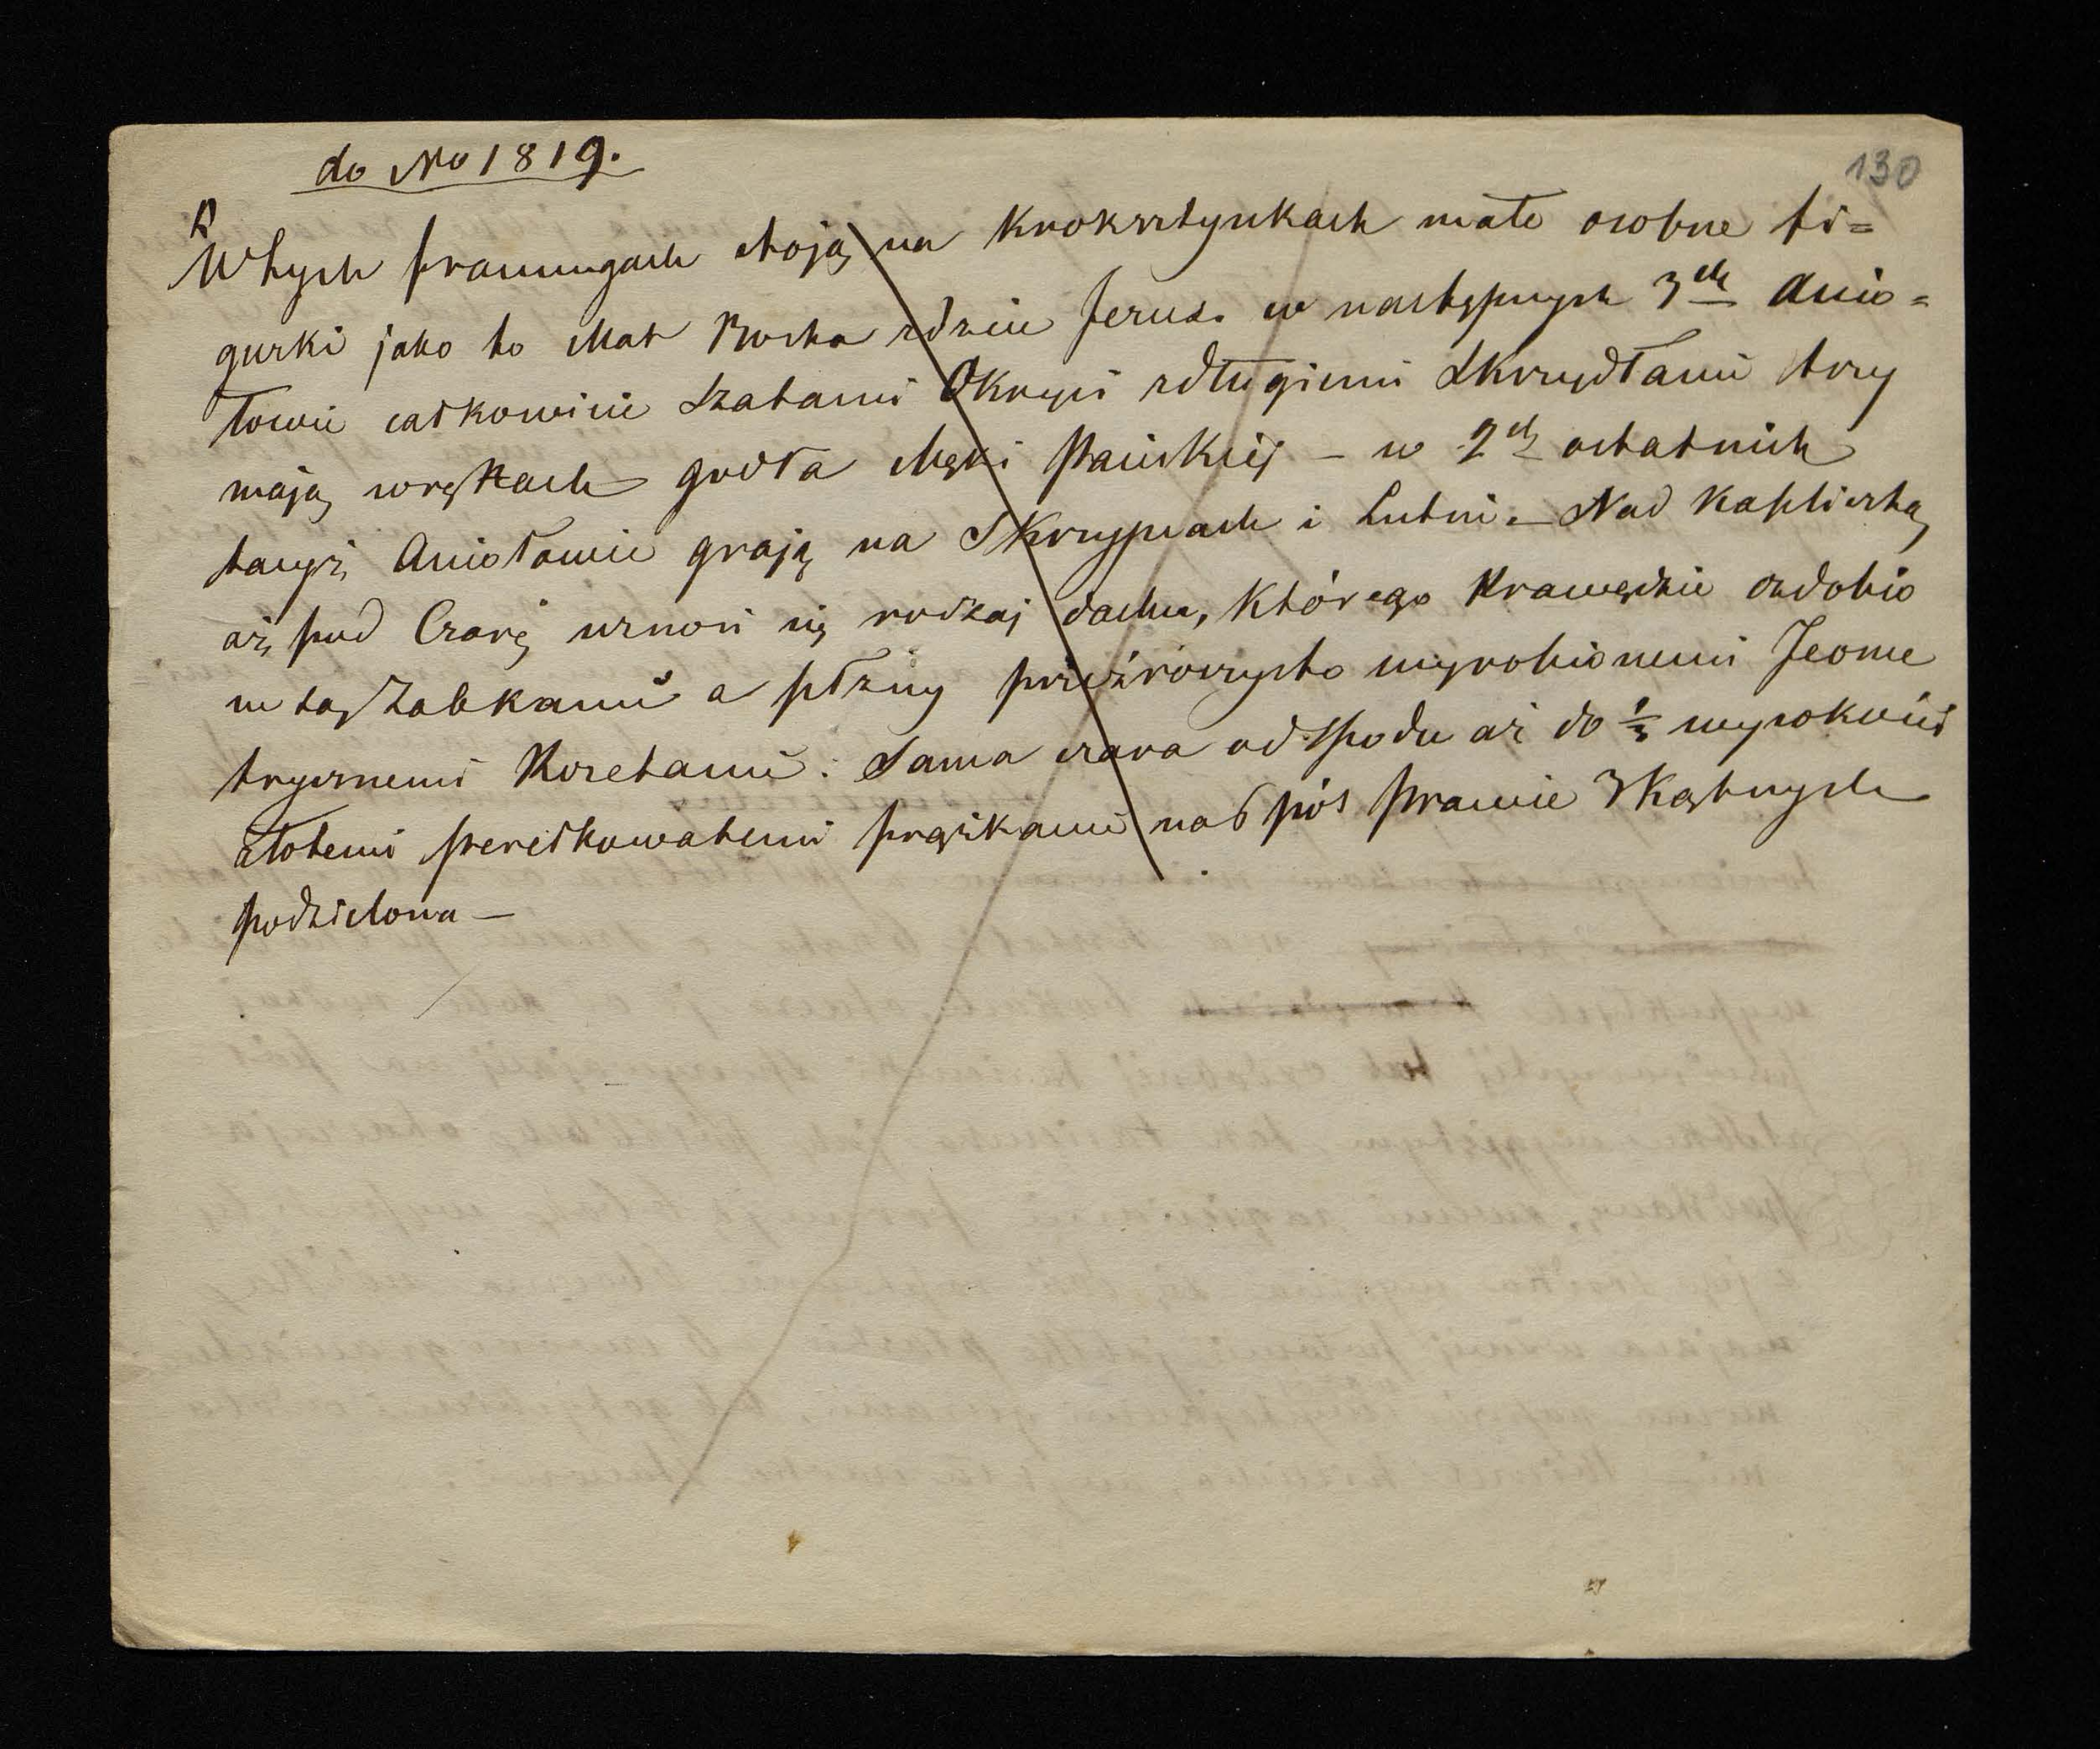 do No 1819.
130
W tych framugach stoją na Kroksztynkach małe osobne fi=
gurki jako to Mat Boska zdzie Jezus. w następnych 3ch Anio=
łowie całkowicie Szatami Okryci zdługiemi Skrzydłami trzy
mają wrękach godła Męki Pańskiej – w 2ch ostatnich
tacyż Aniołowie grają na Skrzypcach i Lutni. – Nad Kapliczką
aż pod Czarę wznosi się rodzaj dachu, którego Krawędzie ozdobio
ne są Żabkami a płzny przeźroczysto wyrobionemi Jeome
trycznemi Rozetami. Sama czara od Spodu aż do ⅓ wysokości
złotemi perełkowatemi prążkami na 6 pól prawie 3Kątnych
podzielona –